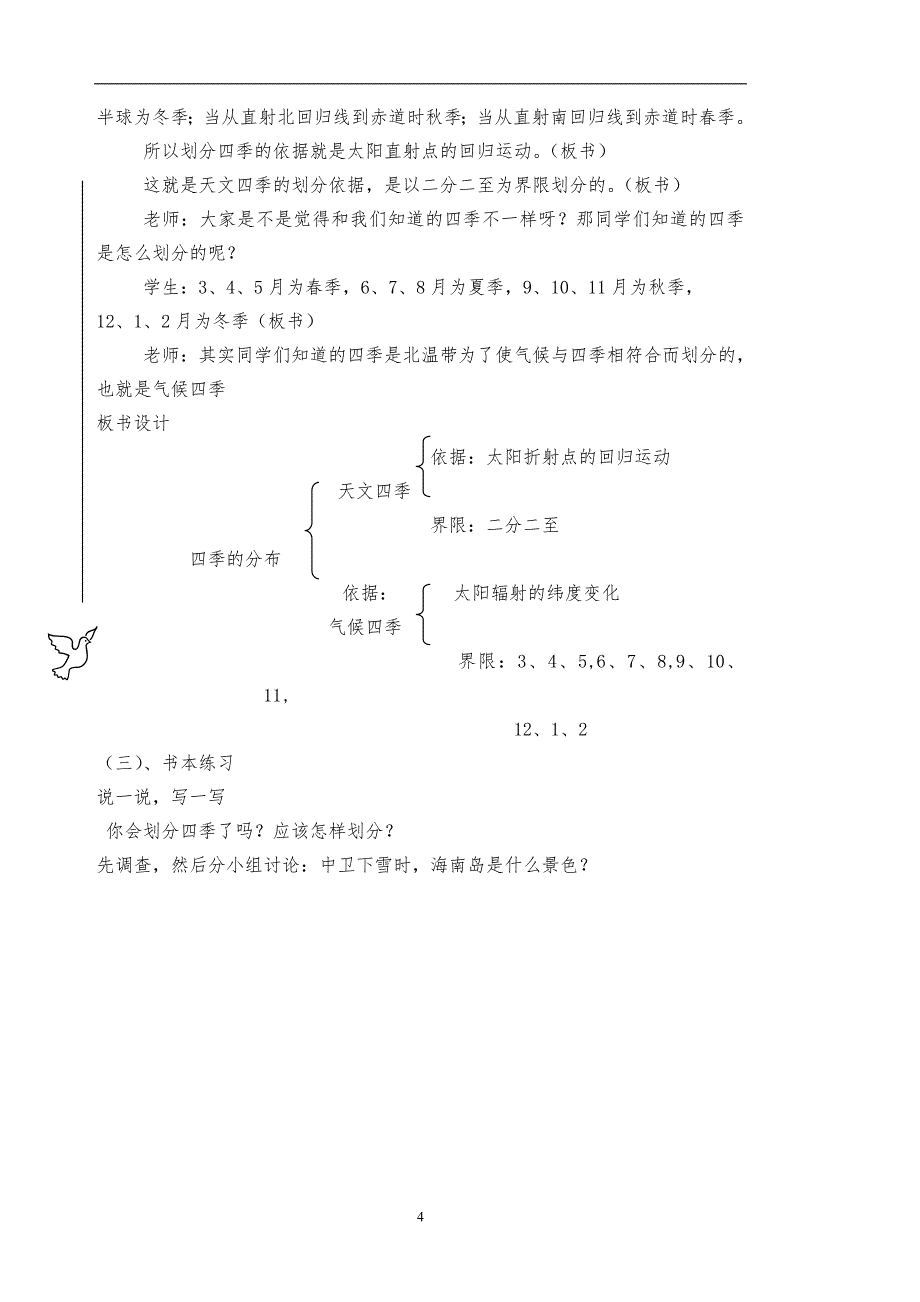 半球为冬季；当从直射北回归线到赤道时秋季；当从直射南回归线到赤道时春季。
所以划分四季的依据就是太阳直射点的回归运动。（板书）
这就是天文四季的划分依据，是以二分二至为界限划分的。（板书）
老师：大家是不是觉得和我们知道的四季不一样呀？那同学们知道的四季
是怎么划分的呢？
学生：3、4、5 月为春季，6、7、8 月为夏季，9、10、11 月为秋季，
12、1、2 月为冬季（板书）
老师：其实同学们知道的四季是北温带为了使气候与四季相符合而划分的，
也就是气候四季
板书设计
依据：太阳折射点的回归运动
天文四季
界限：二分二至
四季的分布
依据： 太阳辐射的纬度变化
气候四季
界限：3、4、5,6、7、8,9、10、
11,
12、1、2
（三）、书本练习
说一说，写一写
你会划分四季了吗？应该怎样划分？
先调查，然后分小组讨论：中卫下雪时，海南岛是什么景色？
4